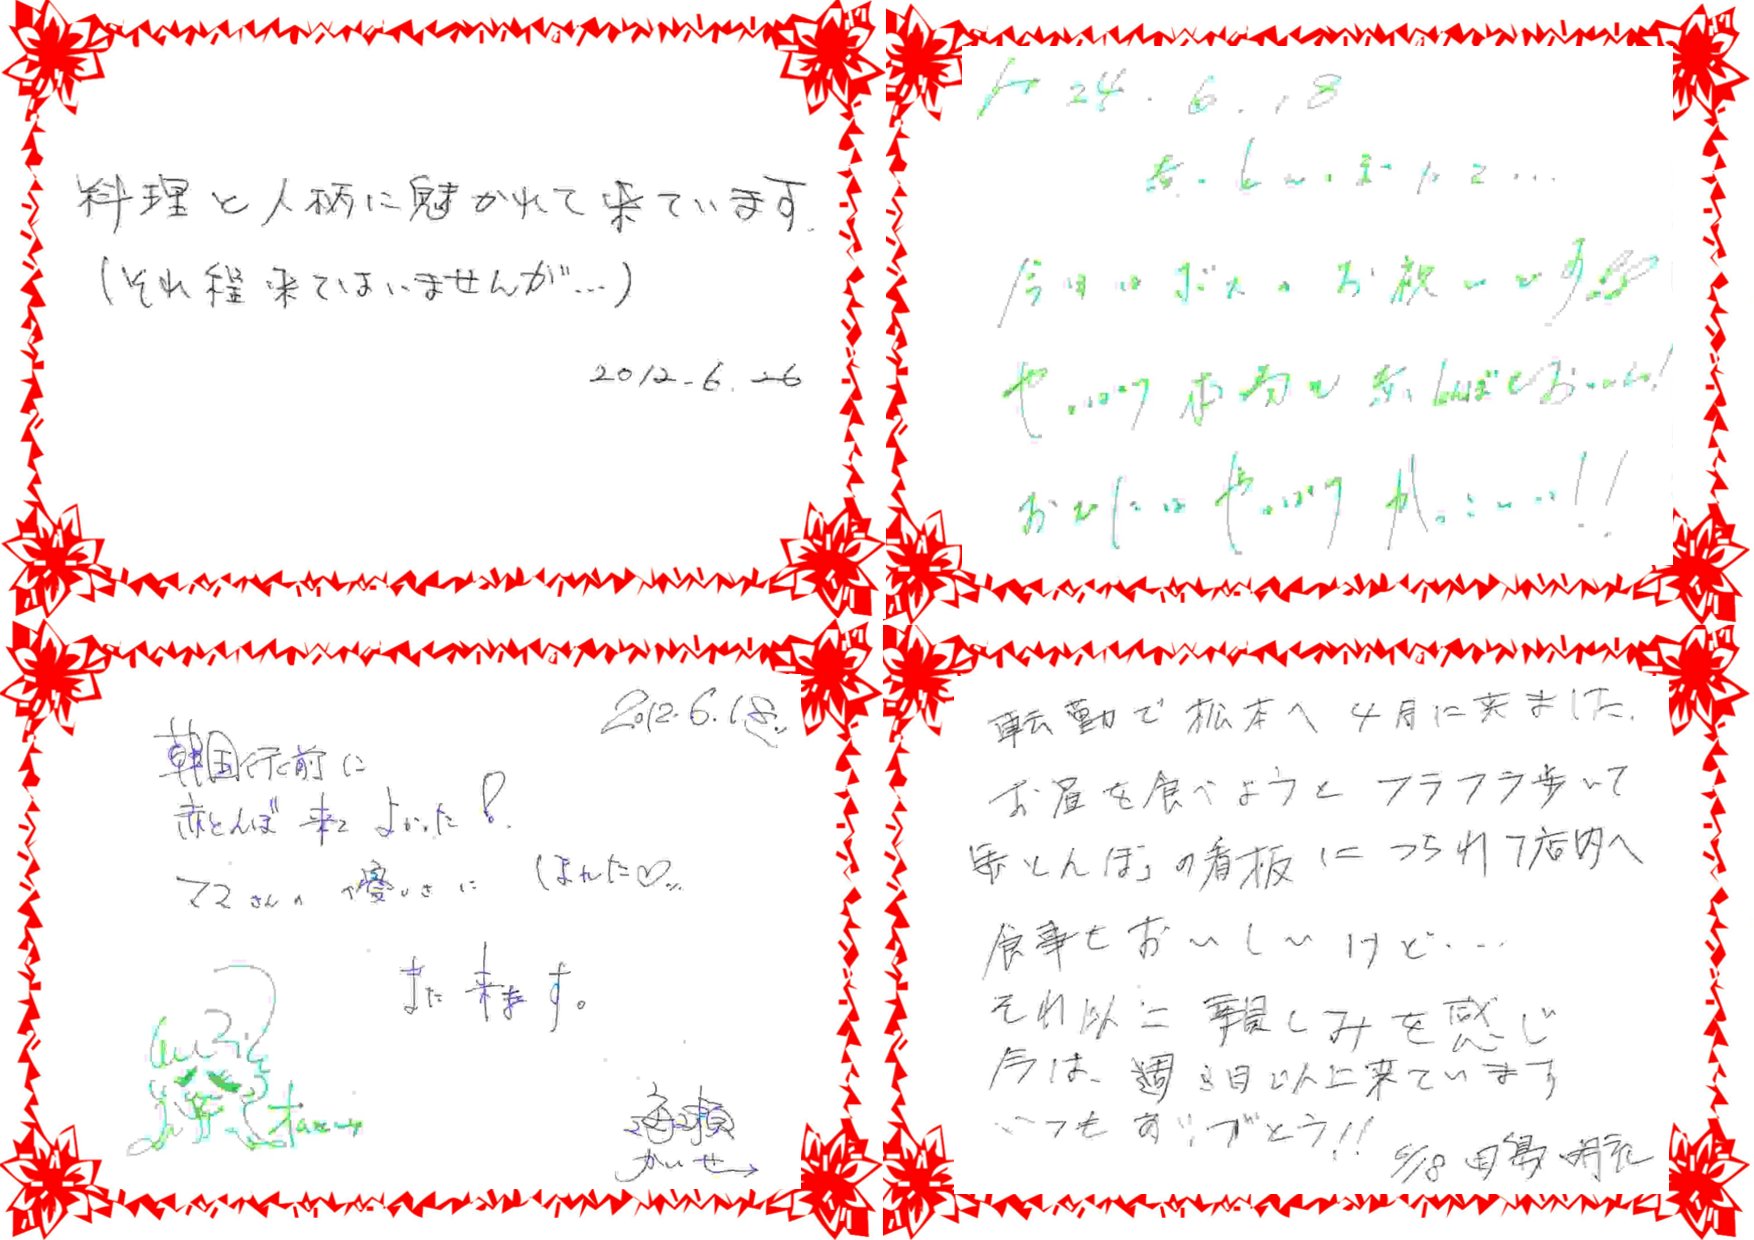 料理と人柄に魅かれて来ています。
(それ程来てはいませんが…)
2012.6.26
H24.6.18
赤とんぼにて…
今日は お祝いです
やっぱり赤とんぼ
やっぱり かっこいい!!
2012.6.18
韓国行前に
赤とんぼ 来て よかった!
ママさんの 優しさに ほれた♡
また 来ます。
海瀬
かいせ
転勤で松本へ 4月に来ました。
お昼を食べようとフラフラ歩いて
赤とんぼの看板につられて店内へ
食事もおいしいけど…
それ以上に親しみを感じ
今は、週3日以上来ています
いつもありがとう!!
6/18